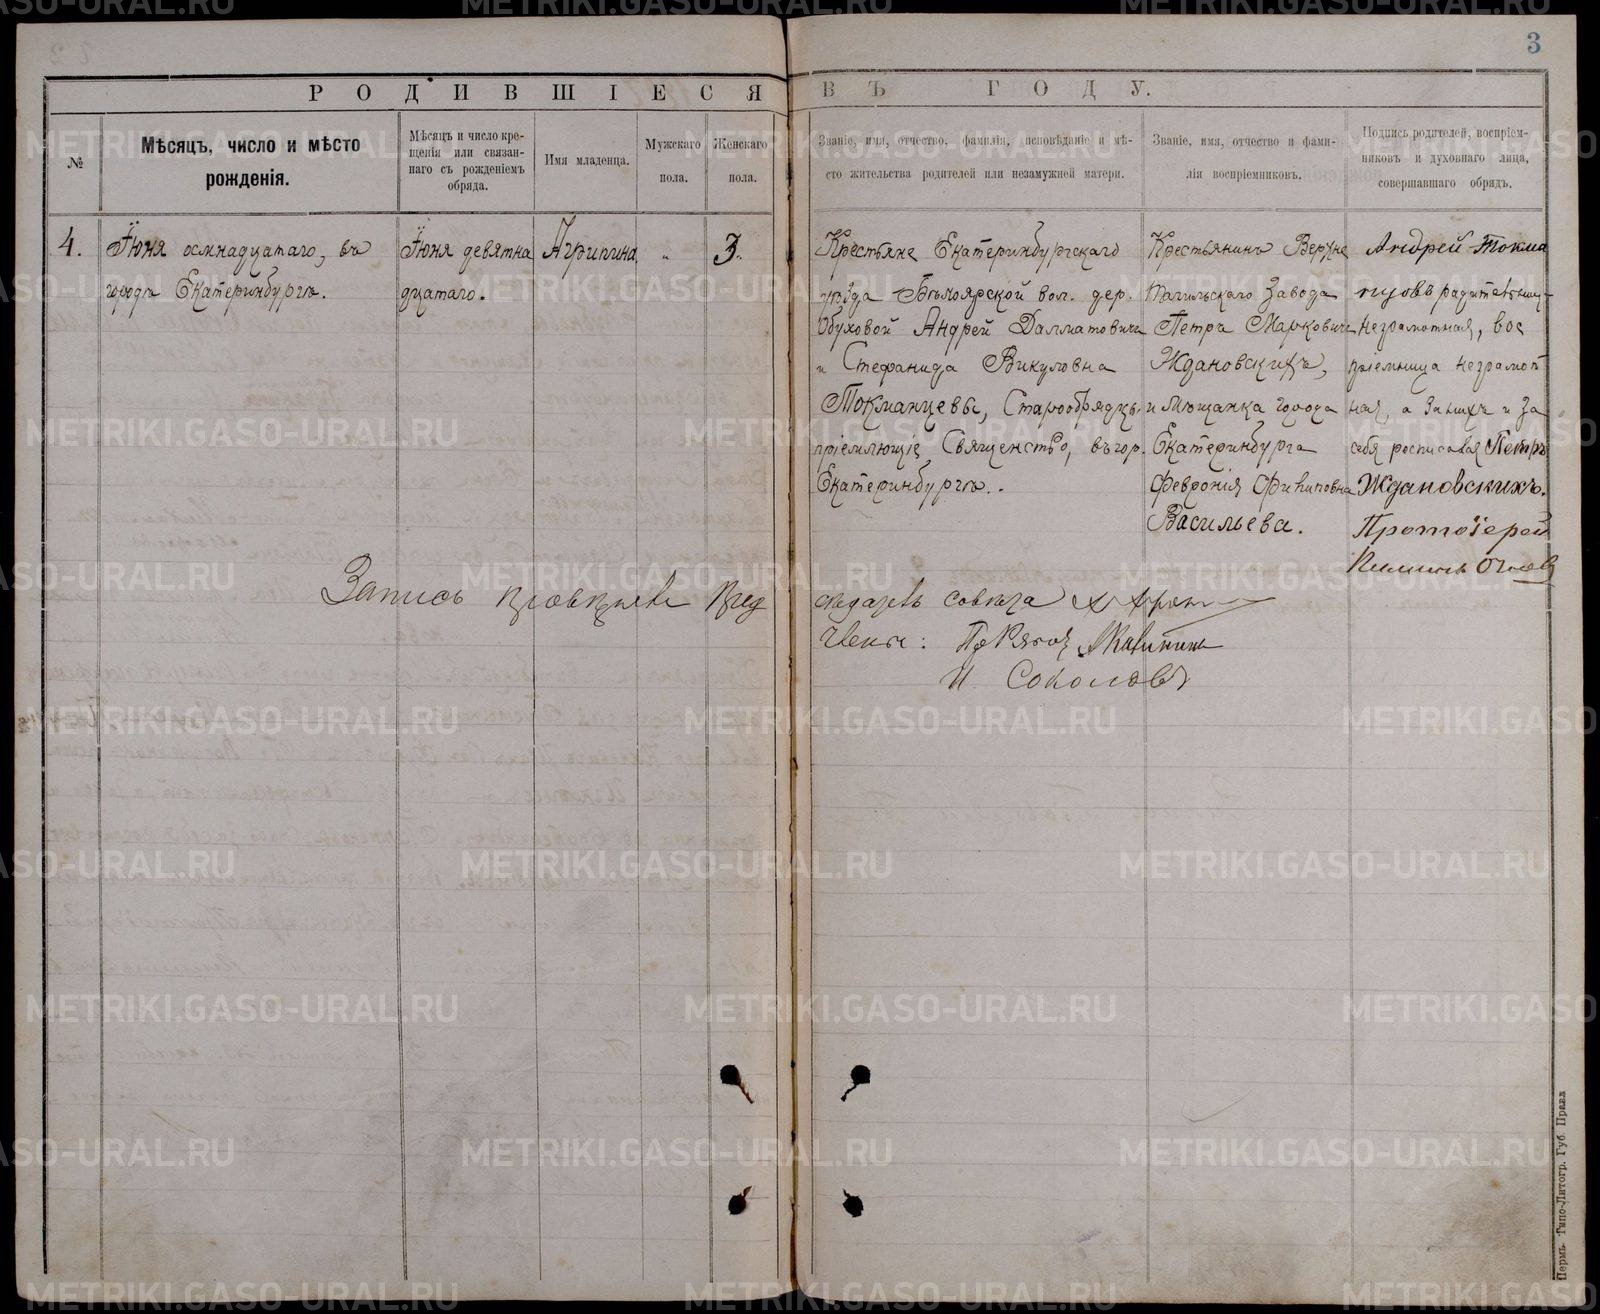 3
РОДИВШІЕСЯ ВЪ ГОДУ.
№
Мѣсяцъ, число и мѣсто
рожденія.
Мѣсяцъ и число кре-
щенія или связан-
наго съ рожденіемъ
обряда.
Имя младенца.
Мужскаго
пола.
Женскаго
пола.
Званіе, имя, отчество, фамилія, исповѣданіе и мѣ-
сто жительства родителей или незамужней матери.
Званіе, имя, отчество и фами-
лія воспріемниковъ.
Подпись родителей, воспріем-
никовъ и духовнаго лица,
совершавшаго обрядъ.
4.
Іюня осмнадцатаго, въ
городѣ Екатеринбургѣ.
Іюня девятна
дцатаго.
Агрипина
„
3.
Крестьяне Екатеринбургскаго
уѣзда Бѣлоярской вол. дер.
Обуховой Андрей Далматовичъ
и Стефанида Викуловна
Токманцевы, Старообрядцы,
пріемлющіе Священство, въ гор.
Екатеринбургѣ.
Крестьянинъ Верхне
Тагильскаго Завода
Петръ Марковичъ
Ждановскихъ,
и Мѣщанка города
Екатеринбурга
Февронія Филиповна
Васильева.
Андрей Токма
нцовъ радительница
Неграмотная, вос
пріемница неграмот
ная, а за нихъ и за
себя росписался Петръ
Ждановскихъ.
Протоіерей
Запись
сѣдатель совѣта
Члены:
И Соколовъ
Пермь. Типо-Литогр. Губ. Правл
METRIKI.GASO-URAL.RU